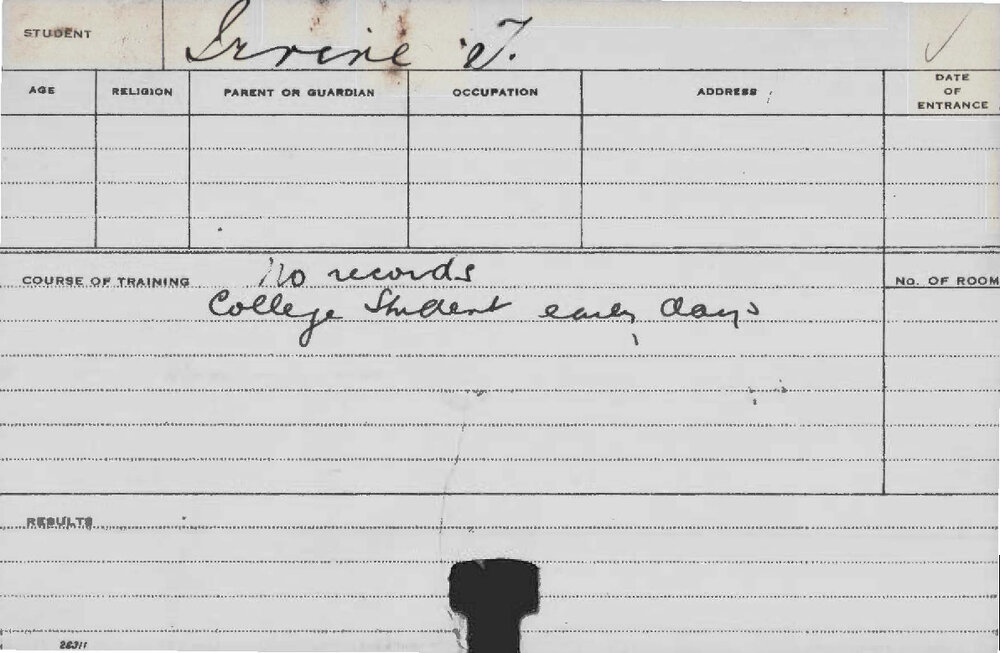 STUDENT Irvine T.
AGE RELIGION PARENT OR GUARDIAN OCCUPATION ADDRESS DATE OF ENTRANCE
COURSE OF TRAINING No records No. OF ROOM
College Student early days
RESULTS
26311